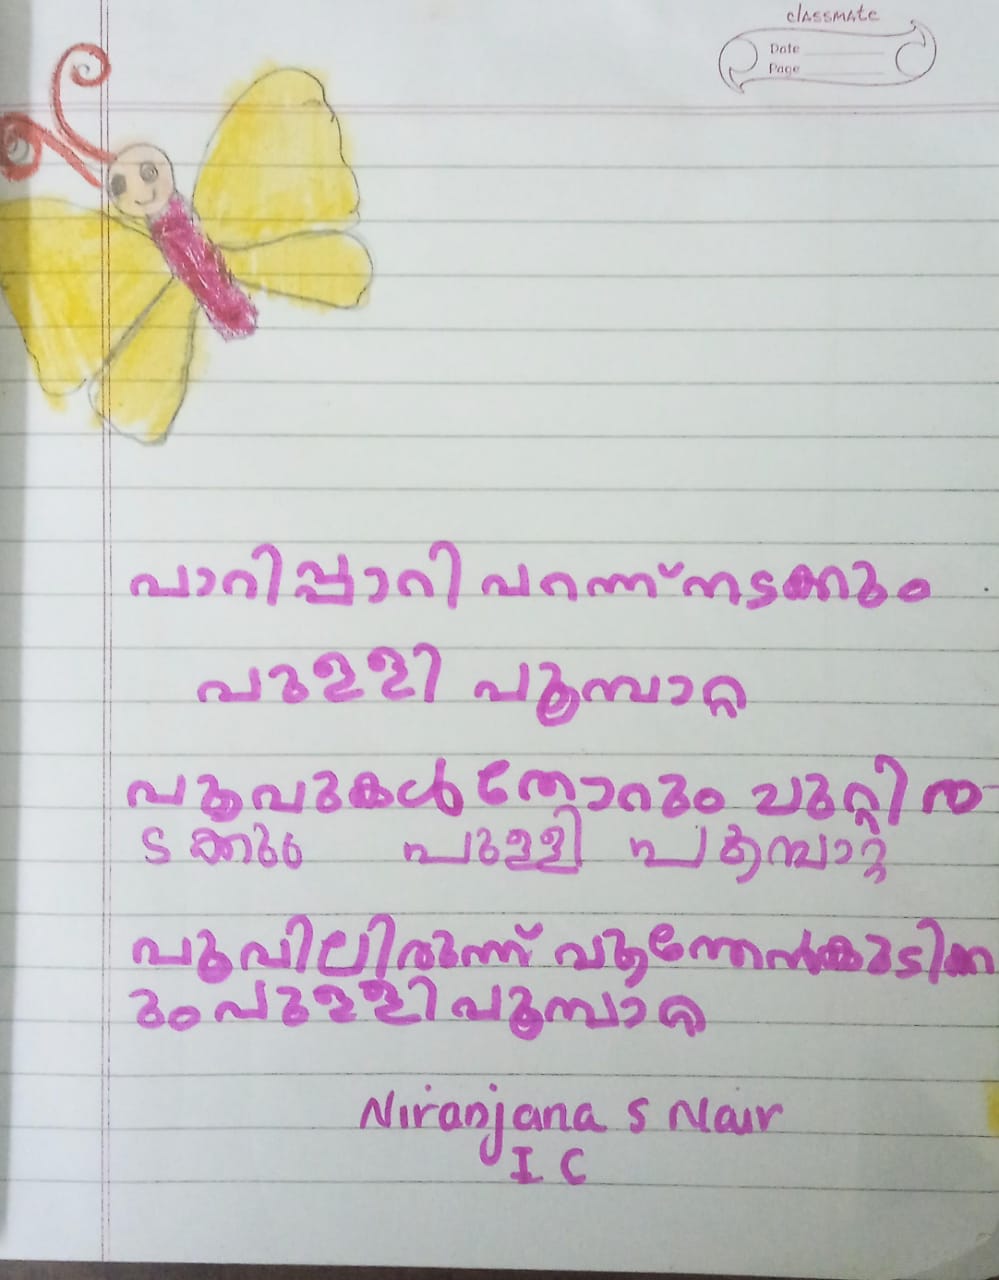 classmate
Date
Page
പാറിപ്പാറി പറന്ന് നടക്കും
പുള്ളി പൂമ്പാറ്റ
പൂവുകൾ തോറും ചുറ്റി ന
ടക്കും പുള്ളി പൂമ്പാറ്റ
പൂവിലിരുന്ന് പൂന്തേൻ കുടിക്ക
ും പുള്ളി പൂമ്പാറ്റ
Niranjana S Nair
I C